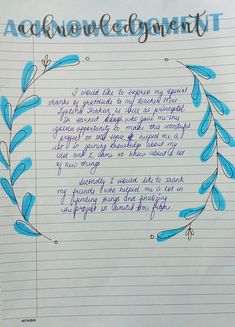 ACKNOWLEDGMENT
acknowledgment
I would like to express my special
thanks of gratitude to my teacher Mrs
as well as principal
Dr who gave me the
golden opportunity to make this wonderful
project on this topic, it helped me a
lot in gaining knowledge about my
and I came to know about a lot
of new things.
Secondly I would like to thank
my friends who helped me a lot in
finding things and finalizing
this project in limited time frame.